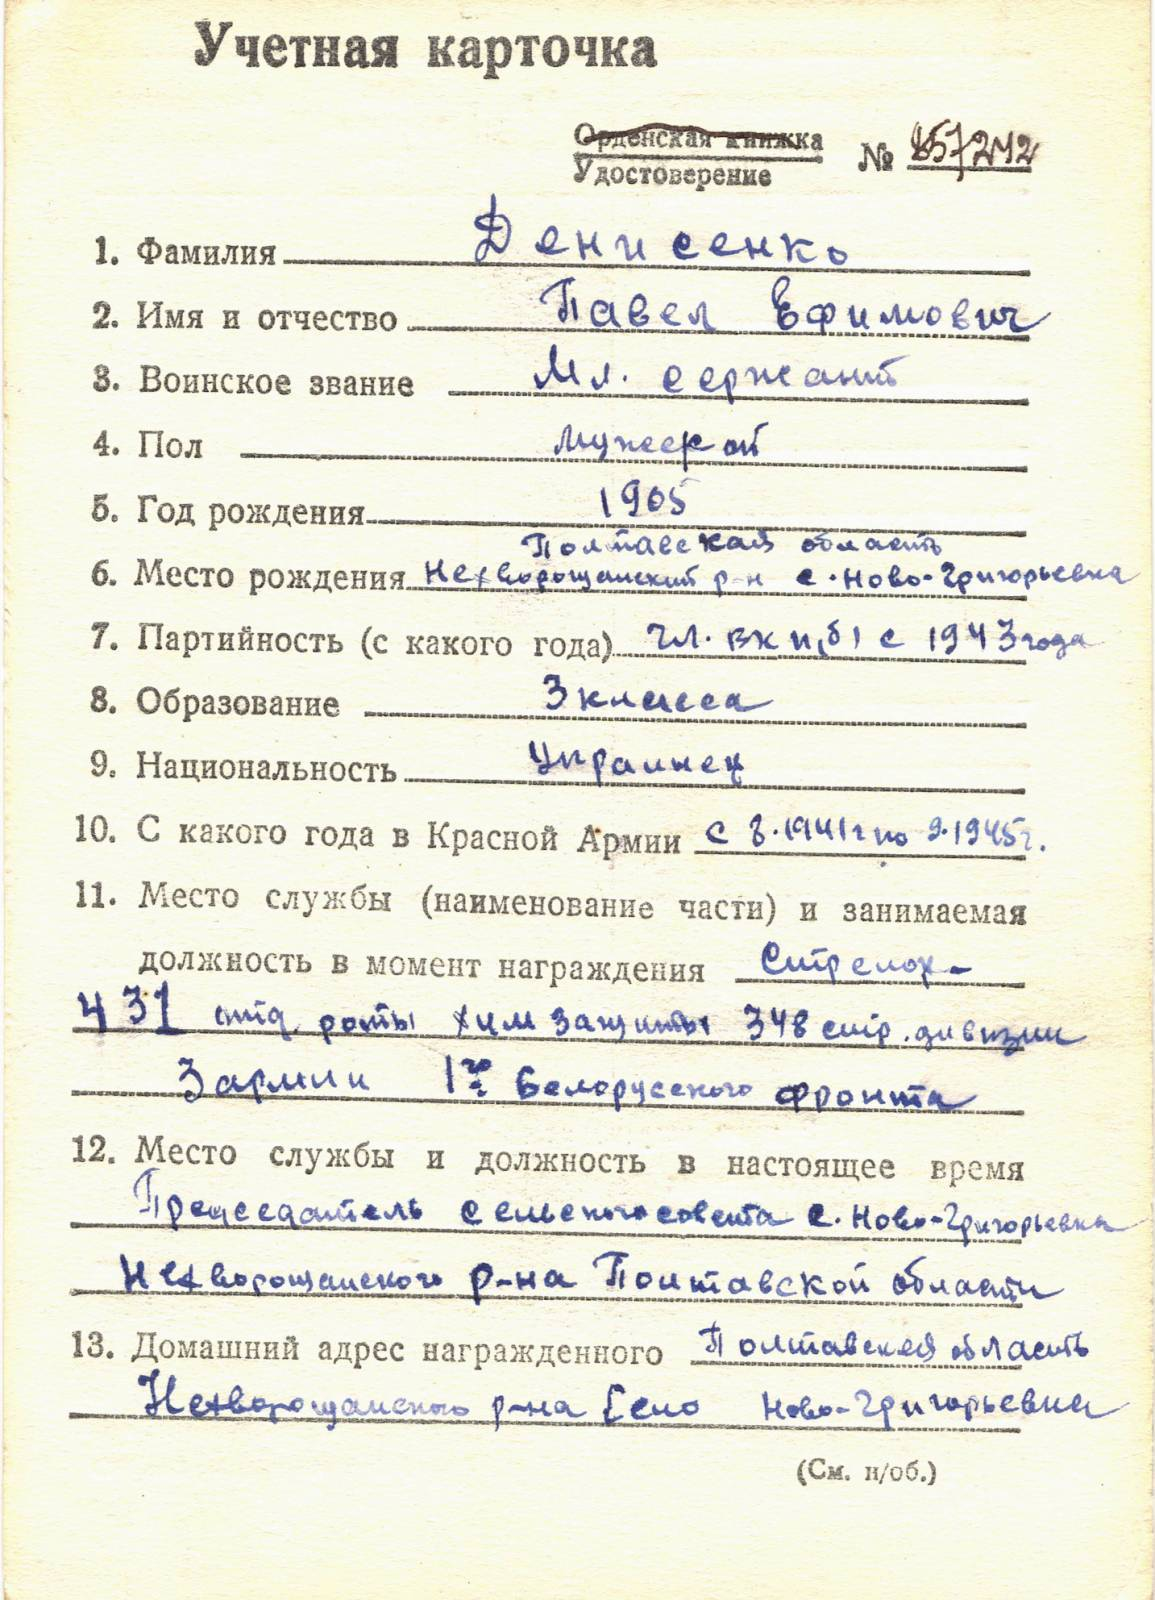 Учетная карточка
Орденская книжка
Удостоверение № 857242
1. Фамилия Денисенко
2. Имя и отчество Павел Ефимович
3. Воинское звание Мл. сержант
4. Пол мужской
5. Год рождения 1905
Полтавская область
6. Место рождения Нехворощанский р-н с. Ново-Григорьевка
7. Партийность (с какого года) чл. ВКП(б) с 1943 года
8. Образование 3 класса
9. Национальность Украинец
10. С какого года в Красной Армии с 8.1941г по 9.1945г.
11. Место службы (наименование части) и занимаемая
должность в момент награждения Стрелок-
431 отд. роты хим защиты 348 стр. дивизии
3 армии 1го Белорусского фронта
12. Место службы и должность в настоящее время
Председатель сельского совета с. Ново-Григорьевка
Нехворощанского р-на Полтавской области
13. Домашний адрес награжденного Полтавская область
Нехворощанского р-на Село Ново-Григорьевка
(См. н/об.)